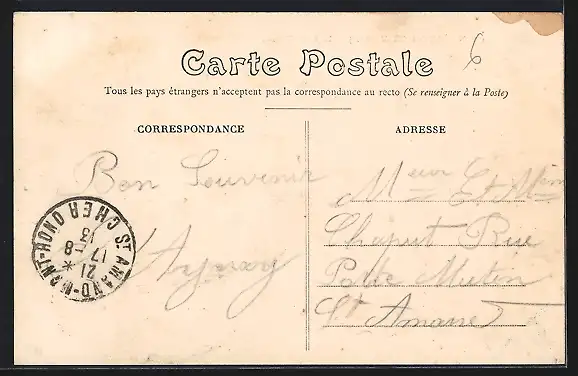 6
Carte Postale
Tous les pays étrangers n'acceptent pas la correspondance au recto (Se renseigner à la Poste)
CORRESPONDANCE
ADRESSE
Bon Souvenir
ST AMAND-MONT-ROND
CHER
21 *
17 -8
13
Meur Et Mme
Chaput Rue
Porte Mutin
St